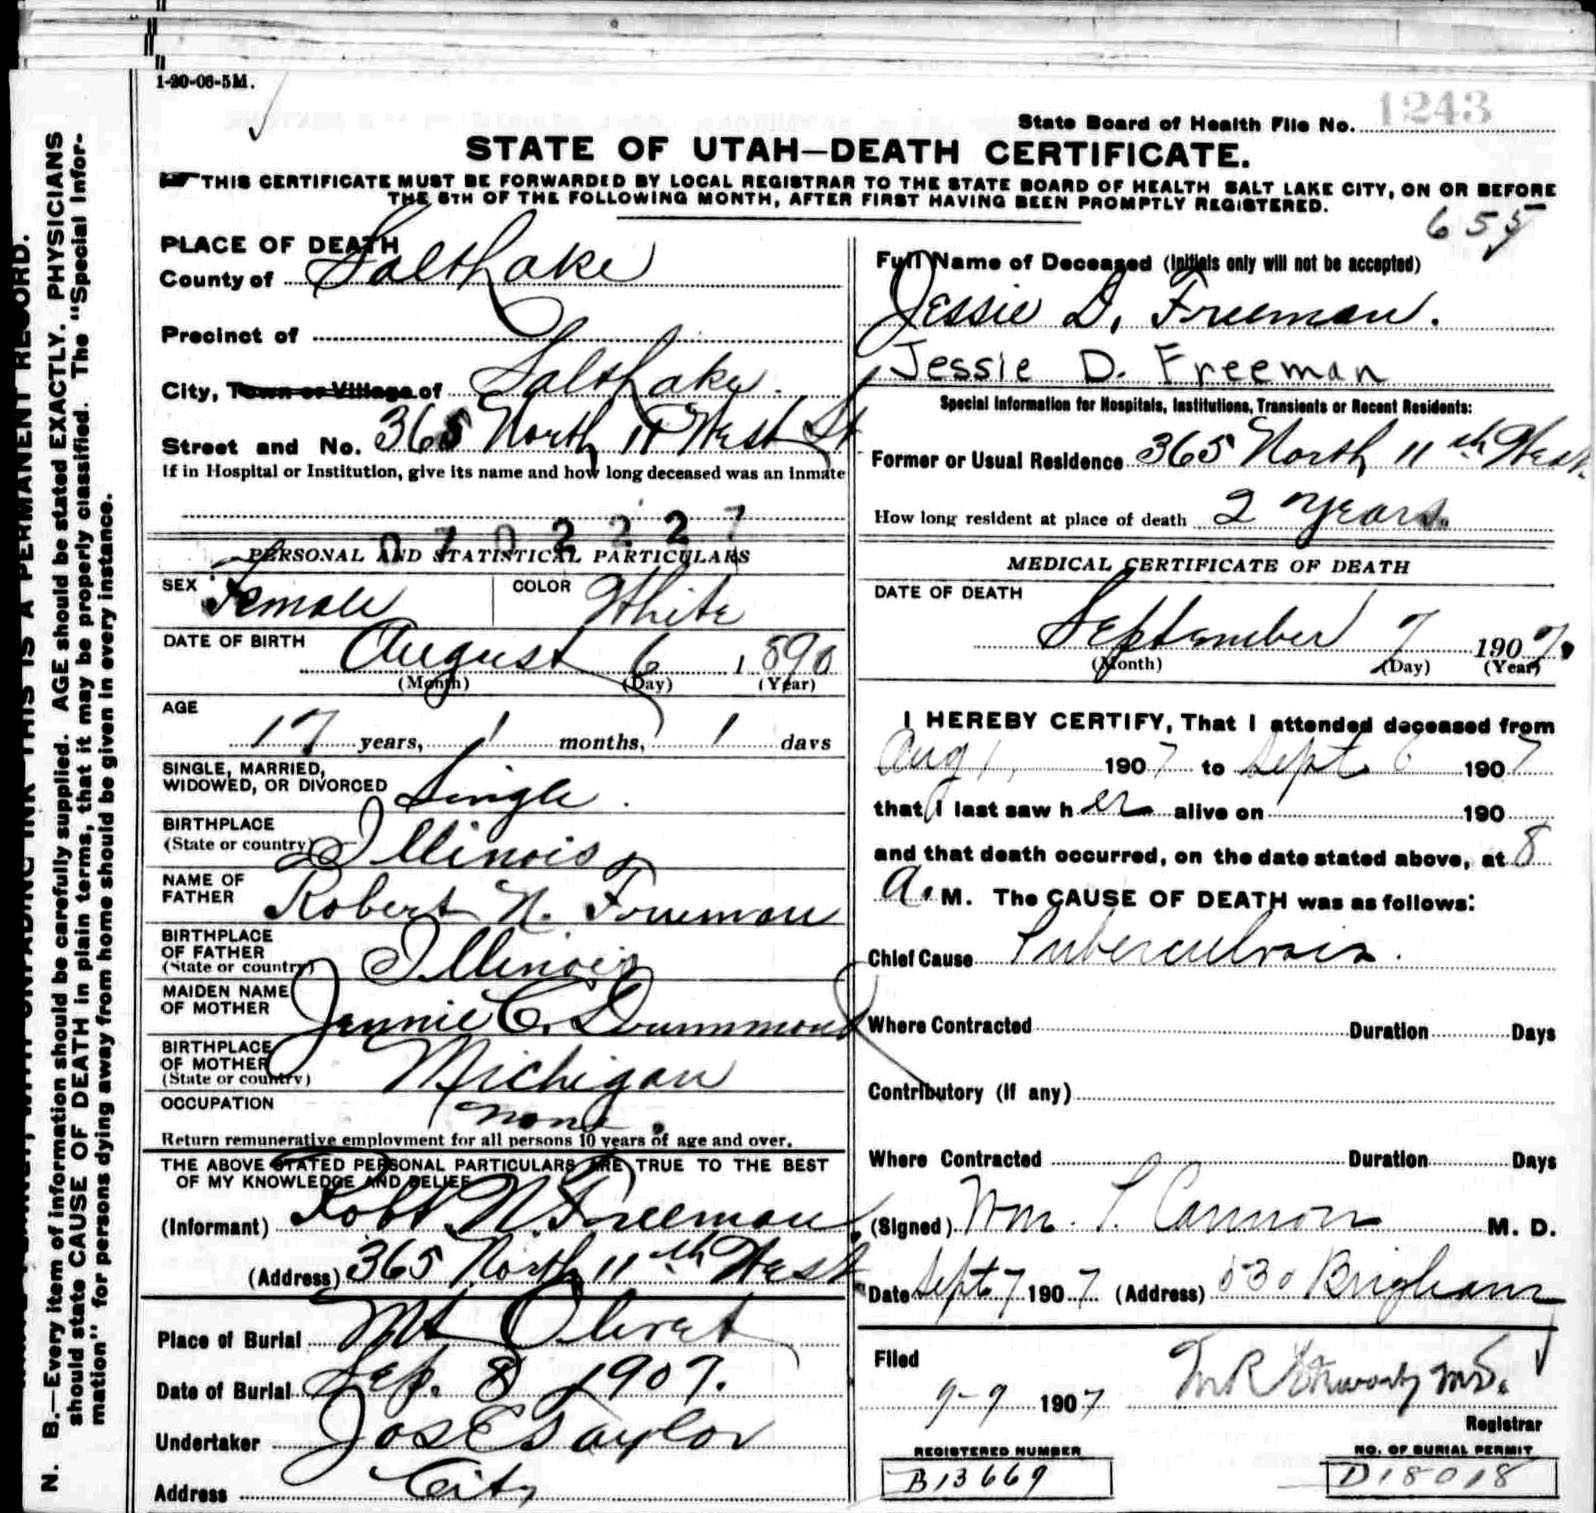 1-20-06-5M.
State Board of Health File No. 1243
STATE OF UTAH—DEATH CERTIFICATE.
THIS CERTIFICATE MUST BE FORWARDED BY LOCAL REGISTRAR TO THE STATE BOARD OF HEALTH SALT LAKE CITY, ON OR BEFORE
THE 5TH OF THE FOLLOWING MONTH, AFTER FIRST HAVING BEEN PROMPTLY REGISTERED.
655
PLACE OF DEATH
County of Salt Lake
Precinct of
City, Town or Village of Salt Lake.
Street and No. 365 North 11 West St
If in Hospital or Institution, give its name and how long deceased was an inmate
0702227
PERSONAL AND STATISTICAL PARTICULARS
SEX Female COLOR White
DATE OF BIRTH
August 6 1890
(Month) (Day) (Year)
AGE
17 years, 1 months, 1 days
SINGLE, MARRIED,
WIDOWED, OR DIVORCED Single.
BIRTHPLACE
(State or country) Illinois
NAME OF
FATHER Robert N. Freeman
BIRTHPLACE
OF FATHER
(State or country) Illinois
MAIDEN NAME
OF MOTHER Jennie C. Drummond
BIRTHPLACE
OF MOTHER
(State or country) Michigan
OCCUPATION
None.
Return remunerative employment for all persons 10 years of age and over.
THE ABOVE STATED PERSONAL PARTICULARS ARE TRUE TO THE BEST
OF MY KNOWLEDGE AND BELIEF
(Informant) Robt. N. Freeman
(Address) 365 North 11th West
Place of Burial Mt Olivet
Date of Burial Sep. 8 1907.
Undertaker Jos E Taylor
Address City
Full Name of Deceased (Initials only will not be accepted)
Jessie D. Freeman.
Jessie D. Freeman
Special Information for Hospitals, Institutions, Transients or Recent Residents:
Former or Usual Residence 365 North 11th West
How long resident at place of death 2 years.
MEDICAL CERTIFICATE OF DEATH
DATE OF DEATH
September 7 1907.
(Month) (Day) (Year)
I HEREBY CERTIFY, That I attended deceased from
Aug 1, 1907 to Sept. 6 1907
that I last saw her alive on 190
and that death occurred, on the date stated above, at 8
a. M. The CAUSE OF DEATH was as follows:
Chief Cause Tuberculosis.
Where Contracted Duration Days
Contributory (If any)
Where Contracted Duration Days
(Signed) Wm. T. Cannon M. D.
Date Sept 7 1907 (Address) 530 Brigham
Filed
9-9 1907 M.D.
Registrar
REGISTERED NUMBER
B13669
NO. OF BURIAL PERMIT
D18018
N. B.—Every item of information should be carefully supplied. AGE should be stated EXACTLY. PHYSICIANS
should state CAUSE OF DEATH in plain terms, that it may be properly classified. The "Special Infor-
mation" for persons dying away from home should be given in every instance.
UNFADING INK THIS IS A PERMANENT RECORD.